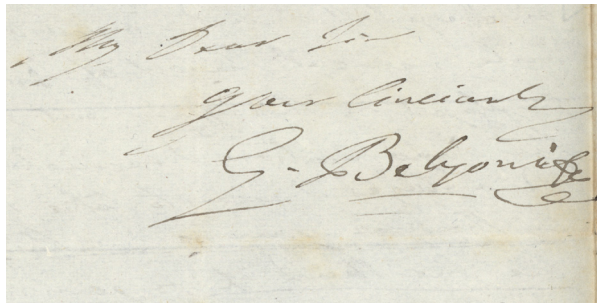 My Dear Sir
your Sincearly
G. Belzoni